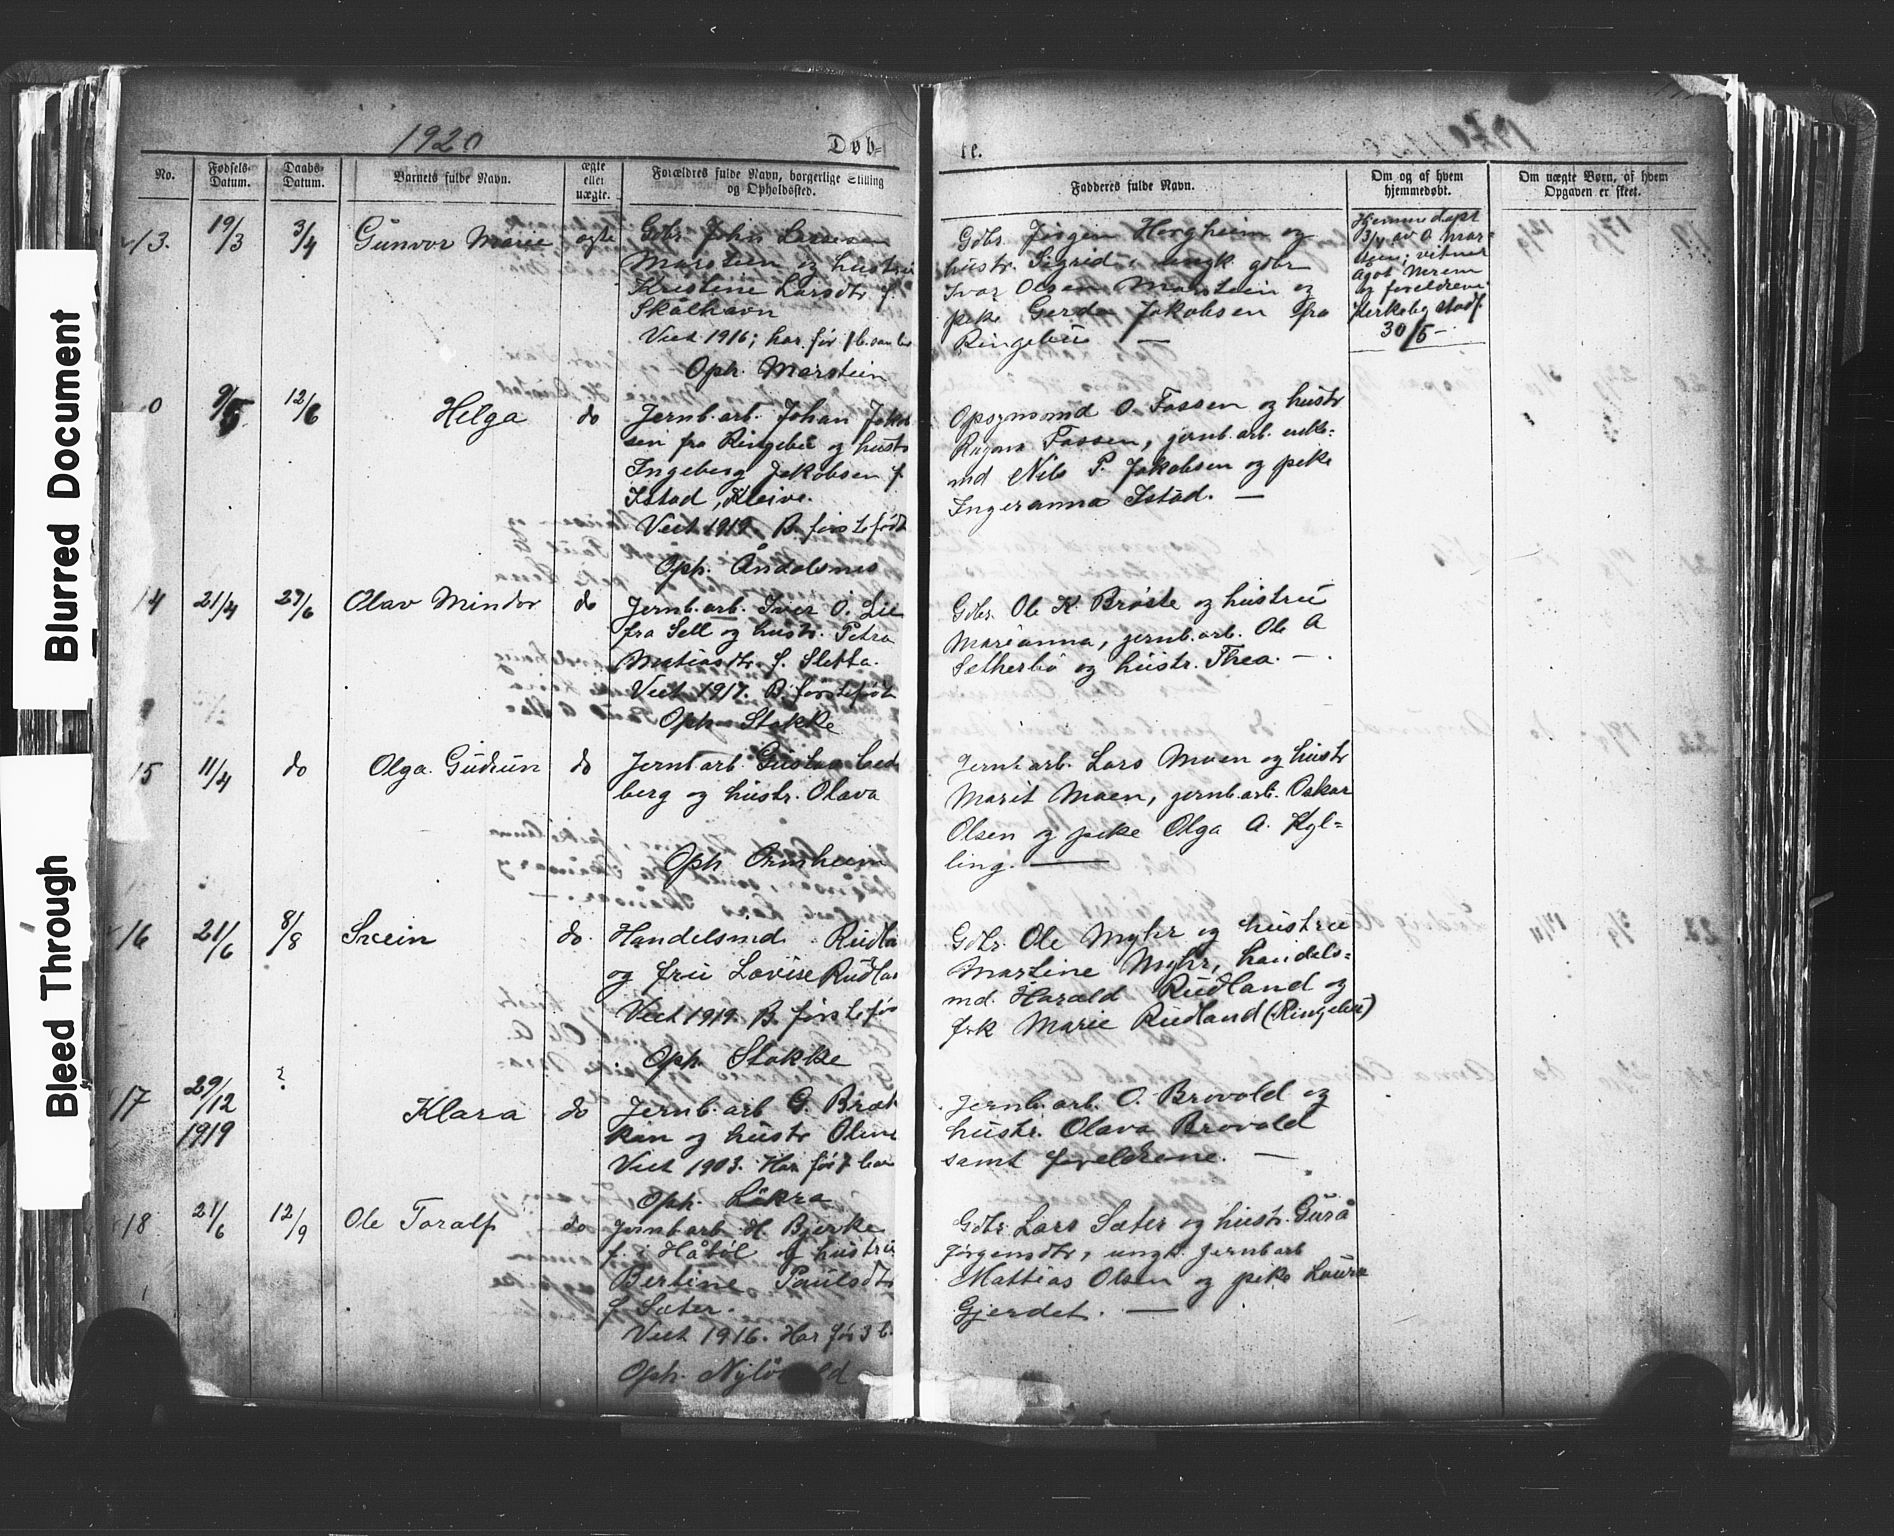 Blurred Document
Bleed Through
1920
Døb-
te.
No.
Fødsels-
Datum.
Daabs-
Datum.
Barnets fulde Navn.
ægte
eller
uægte.
Forældres fulde Navn, borgerlige Stilling
og Opholdssted.
Fadderes fulde Navn.
Om og af hvem
hjemmedøbt.
Om uægte Børn, af hvem
Opgaven er skeet.
13.
19/3
3/4
Gunvor Marie
egte
Gbr. John Larssen
Marstein og hustru
Kristine Larsdtr f.
Skålhavn
Viet 1916; har før 1 b.
Oph. Marstein
Gbr. Jørgen Horgheim og
hustr. Sigrid, ungk. gbr
Ivar Olsen Marstein og
pike Gerda Jakobsen fra
Ringebu —
Hjemmedøpt
3/4 av O. Mar-
stein; vitner
Agot
og foreldrene
Kirkelig stadf
30/5 —
0
9/5
12/6
Helga
do
Jernb.arb. Johan Jakob
sen fra Ringebu og hustr
Ingeborg Jakobsen f.
Istad, Kleive.
Viet 1919. B. førstefødt
Oph. Åndalsnes
Opsynsmd O. Fossen og hustr
Fossen, jernb.arb. enke-
md Nils P. Jakobsen og pike
Ingeranna Istad. —
14
21/4
27/6
Olav Mindor
do
Jernb.arb. Iver O. Lie
fra Sell og hustr. Petra
Matiasdtr. f. Sletta.
Viet 1917. B. førstefødt
Oph. Stokke
Gbr. Ole K. Brøste og hustru
Marianna, jernb.arb. Ole A
Sætherbø og hustr. Thea. —
15
11/4
do
Olga Gudrun
do
Jernb.arb. Gustav Ced
berg og hustr. Olava
Oph. Ormheim
Jernb.arb. Lars Moen og hustr
Marit Moen, jernb.arb. Oskar
Olsen og pike Olga A. Kyl-
ling. —
16
21/6
8/8
Svein
do.
Handelsmd. Rudla
og fru Lovise Rudlan
Viet 1919. B. førstefø
Oph. Stokke
Gbr. Ole Myhr og hustru
Martine Myhr, handels-
md. Harald Rudland og
frk Marie Rudland (Ringebu)
17
29/12
1919
?
Klara
do
Jernb.arb G. Bræk
kan og hustr Oline
Viet 1903. Har før 7 bar
Oph. Løkra
Jernb.arb. O. Brovold og
hustr. Olava Brovold
samt foreldrene. —
18
21/6
12/9
Ole Toralf
do
Jernb.arb H. Bjerke
f. i Håbøl og hustru
Bertine Paulsdtr
f. Sæter.
Viet 1916. Har før 3 b.
Oph.
Gbr. Lars Sæter og hustr. Gurå
Jørgensdtr, ungk. jernb.arb
Mattias Olsen og pike Laura
Gjerdet. —